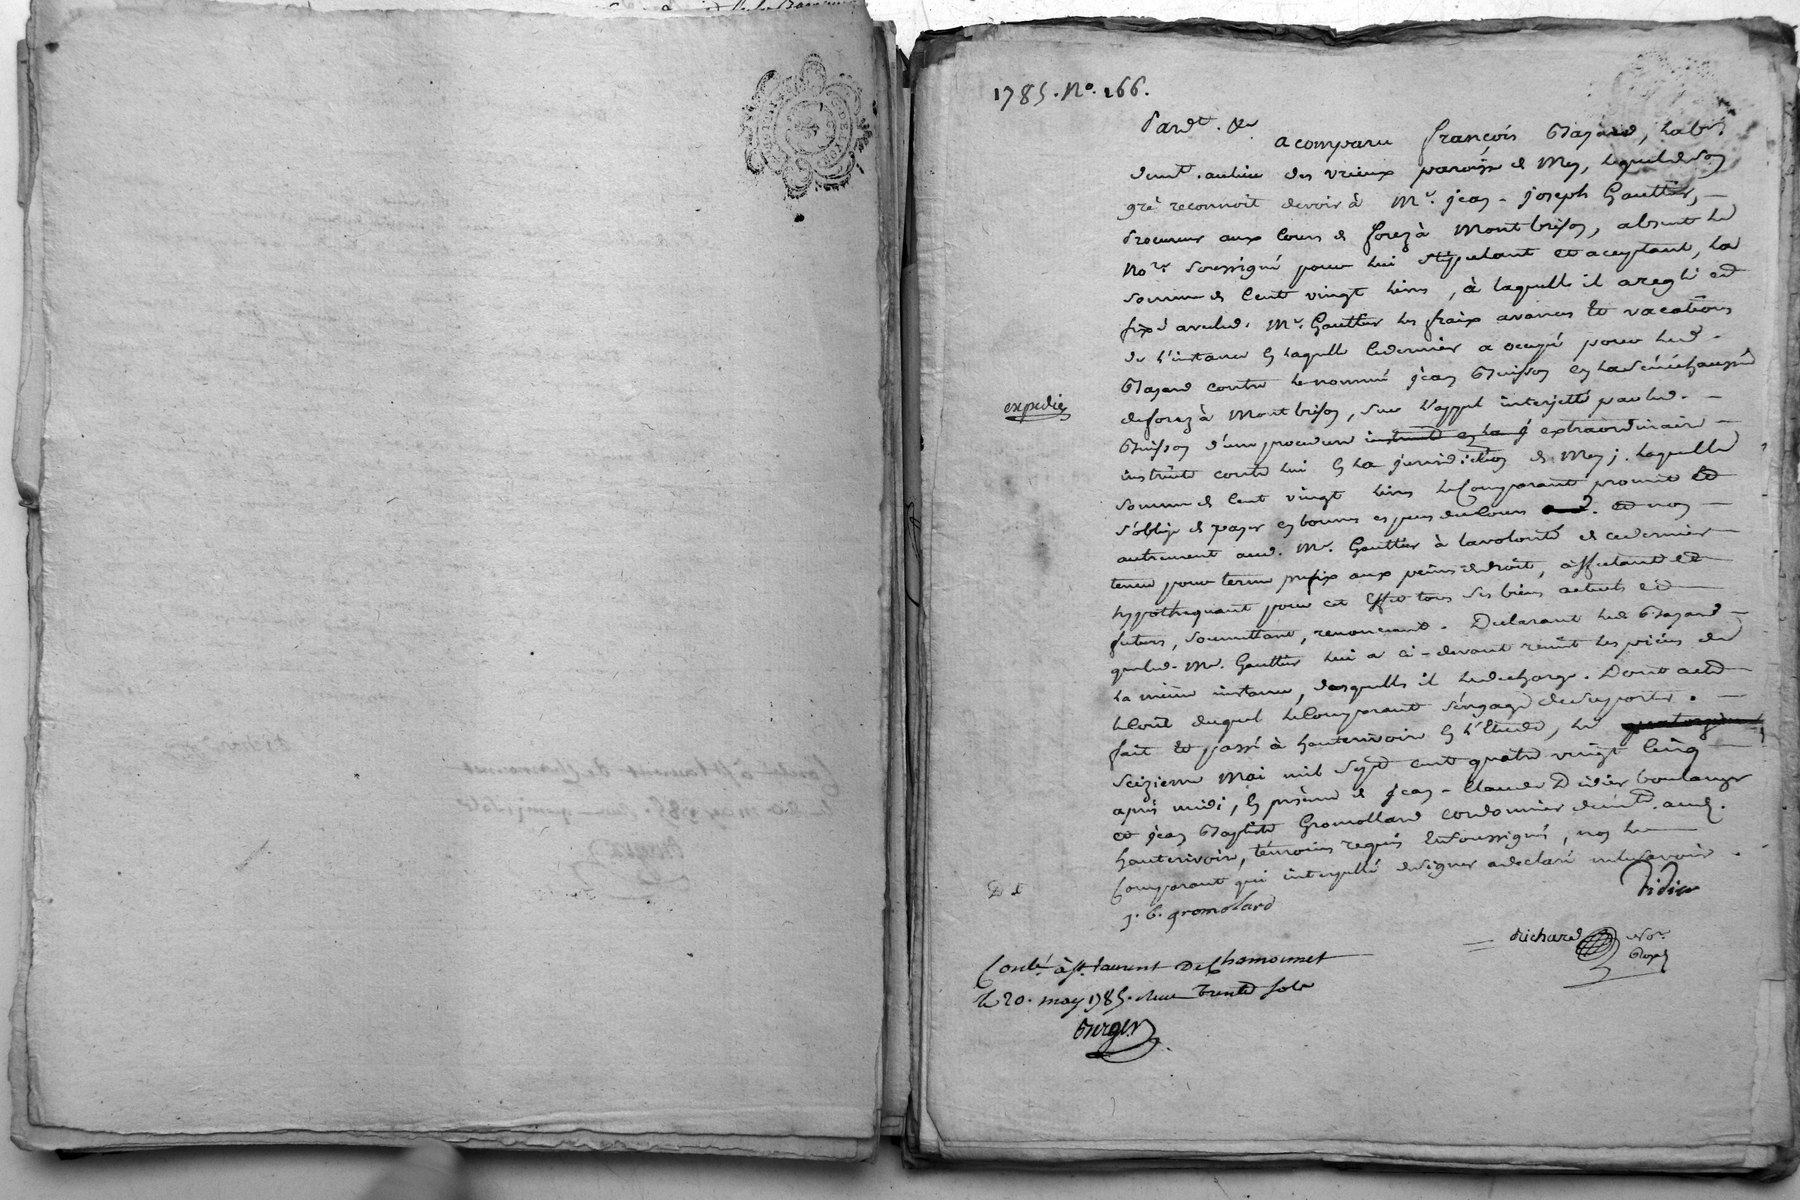 1785. No. 166.
Pardt. &a
a comparu françois Bajard, labr.
demt. au lieu des vrieux paroisse de Mey, lequel de son
gré reconnoit devoir à Mr. jean-joseph Gauttier,
Procureur aux Cours de forez à Montbrison, absent le
Nore. soussigné pour lui stipulant et acceptant, la
somme de Cent vingt livres, à laquelle il a reglé et
fixé avecled. Mr. Gauttier les fraix avances et vacations
de l'instance en laquelle ce dernier a occupé pour led.
Bajard contre le nommé jean Buisson en la sénéchaussée
de forez à Montbrison, sur l'appel interjetté par led.
expedié
Buisson d'une procedure instruite en la j extraordinaire
instruite contre lui en la jurisdiction de Mey; laquelle
somme de Cent vingt livres le Comparant promet et
s'oblige de payer en bonnes especes du Cours et non
autrement aud. Mr. Gauttier à la volonté de ce dernier
tenue pour terme prefix aux peines de droit, affectant et
hypothequant pour cet effet tous ses biens actuels et
futurs, soumettant, renonçant. Declarant led. Bajard
que led. Mr. Gauttier lui a ci-devant remit les pieces de
la même instance, desquelles il le decharge. Dont acte
le Coût duquel le Comparant s'engage de suporter.
fait et passé à hauterivoire en l'Etude, le quatorzieme
seizieme Mai mil sept cent quatre vingt Cinq
après midi, en présence de jean-Claude Didier boulanger
et jean Baptiste Gromollard cordonnier demt. aud.
hauterivoire, témoins requis et soussignés, non le
Comparant qui interpellé de signer a declaré ne le savoir.
Didier
j. b. gromolard
Richard Nore.
Royal
Contlé. à St. laurent De Chamousset
le 20. may 1785. Reçu trente sols
Burger